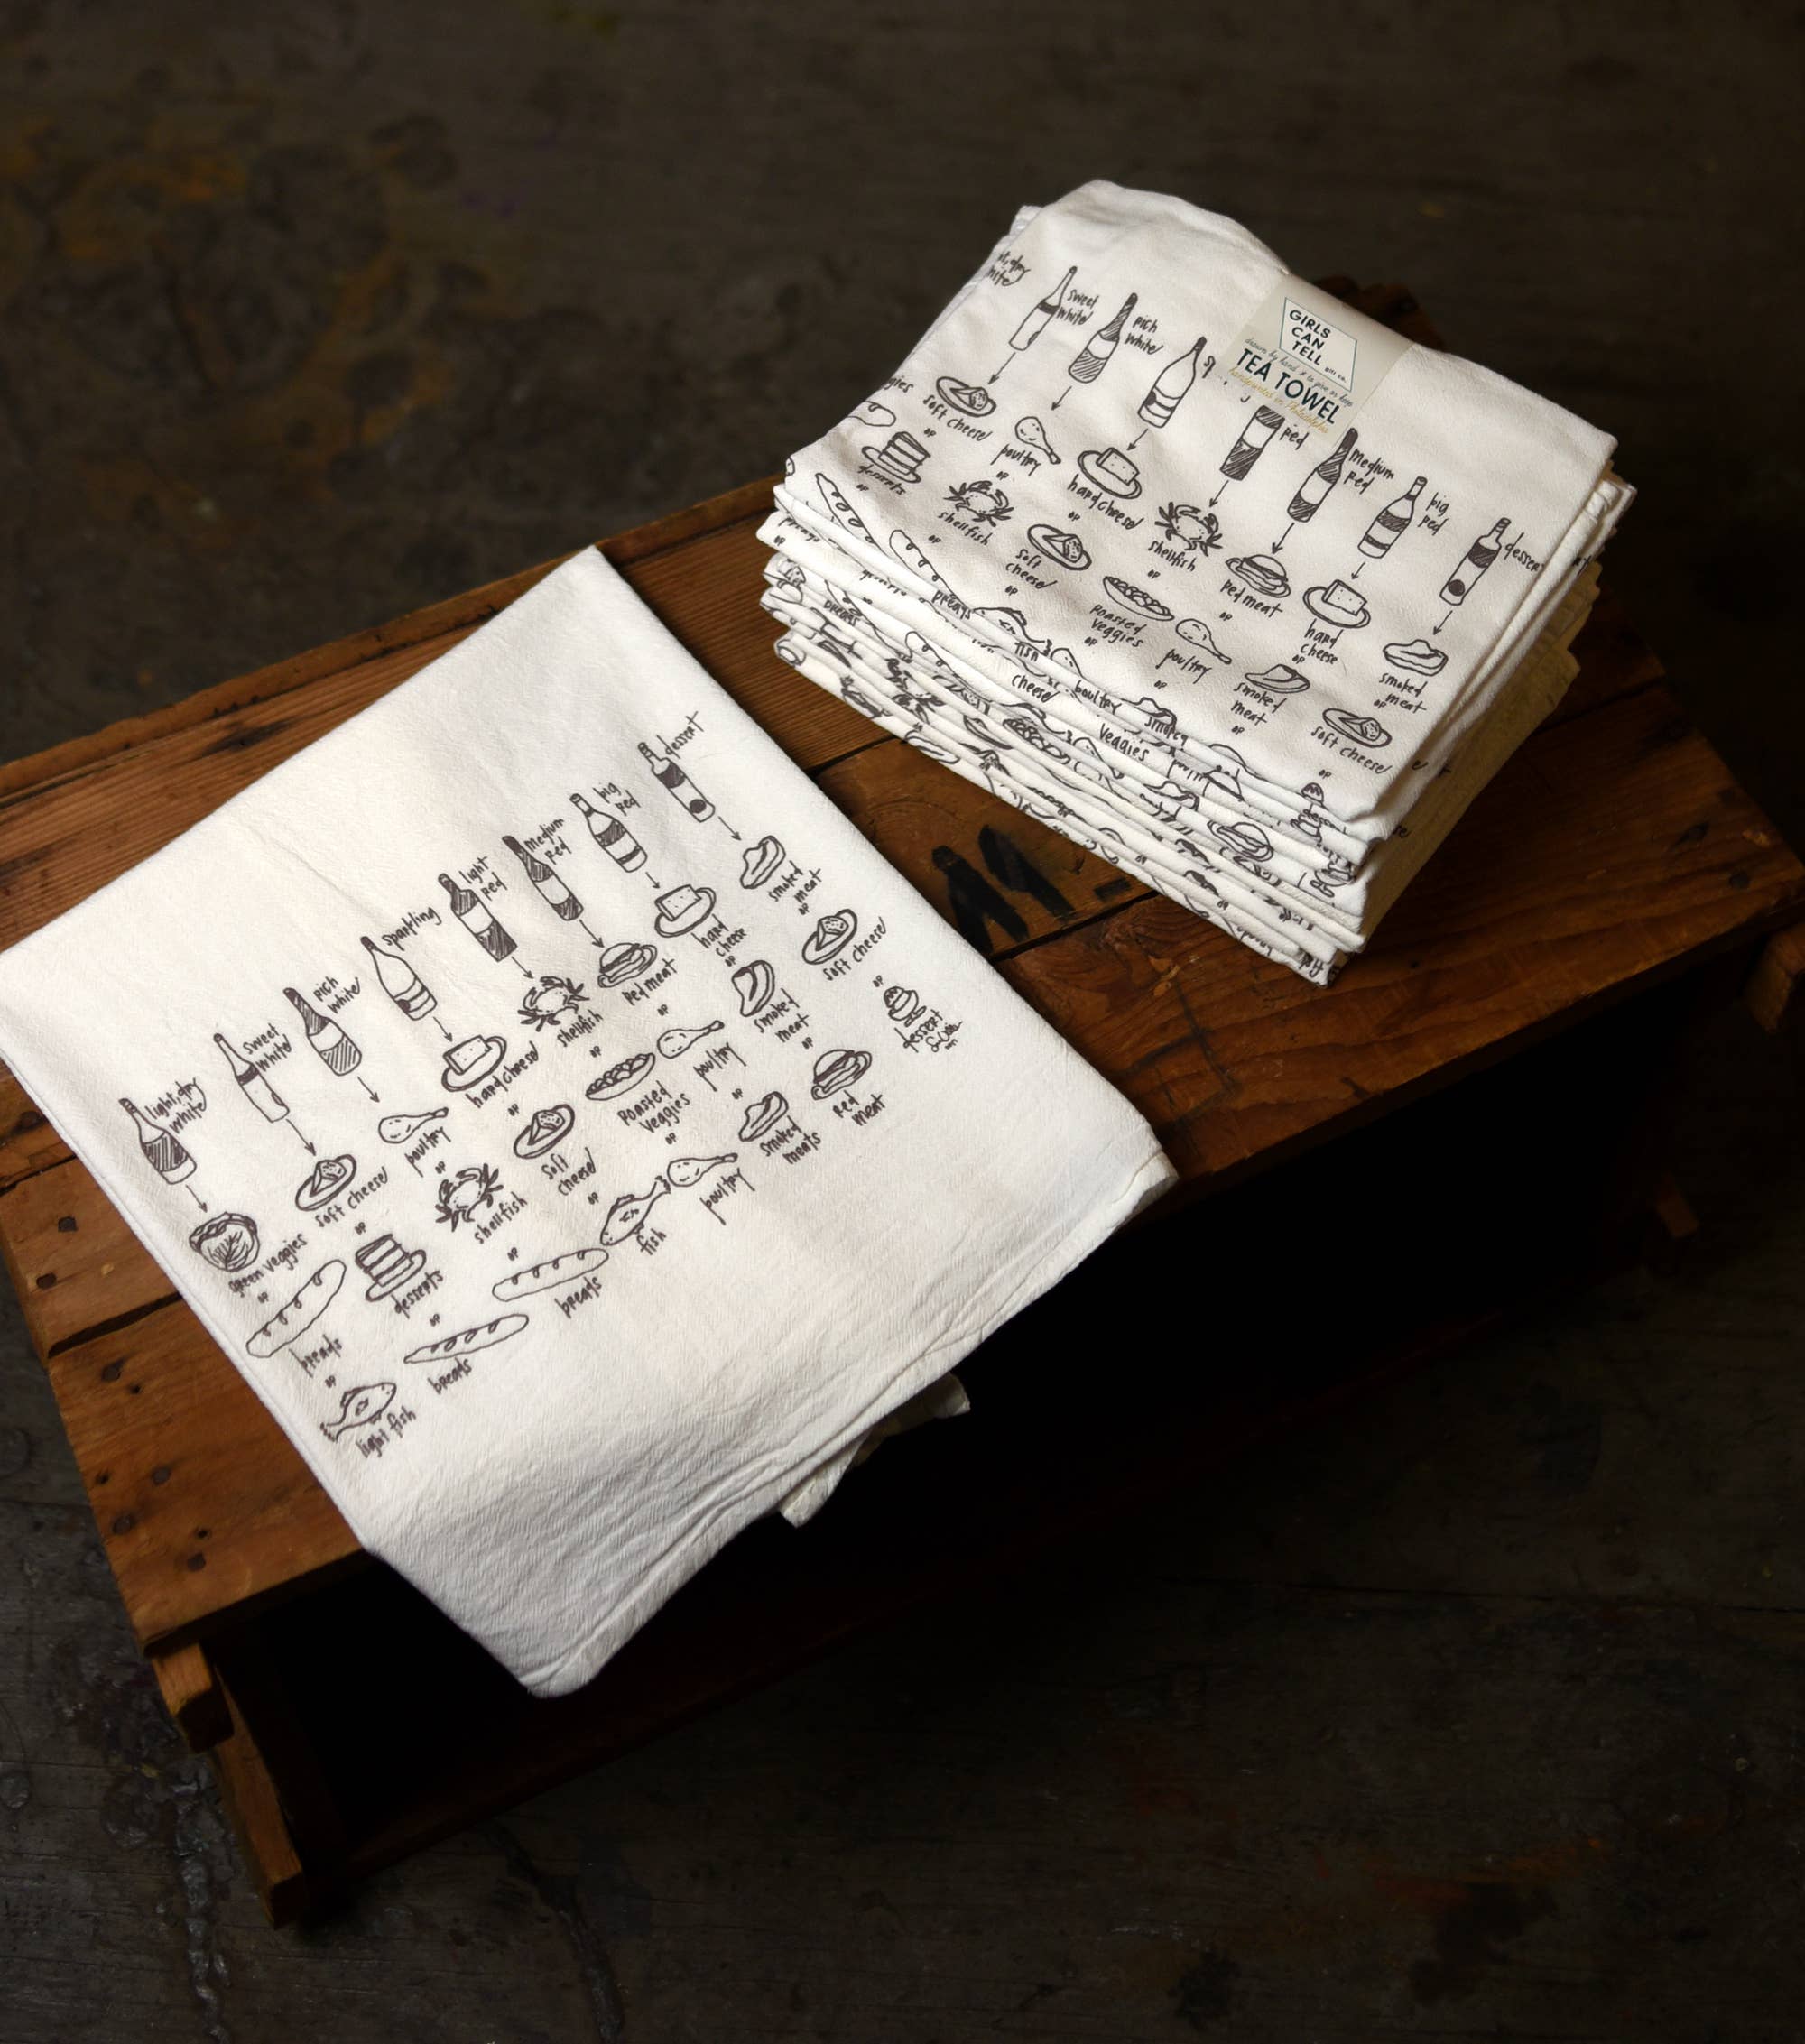 light, dry
white
sweet
white
rich
white
sparkling
light
red
medium
red
big
red
dessert
green veggies
or
breads
or
light fish
soft cheese
or
desserts
or
breads
poultry
or
shellfish
or
breads
hard cheese
or
soft
cheese
or
fish
shellfish
or
roasted
veggies
or
poultry
red meat
or
poultry
or
smoked
meats
hard
cheese
or
smoked
meat
or
red
meat
smoked
meat
or
soft cheese
or
dessert
GIRLS
CAN
TELL
gift co.
drawn by hand to give or keep
TEA TOWEL
handprinted in Philadelphia
sweet
white
rich
white
red
medium
red
big
red
dessert
soft cheese
or
desserts
or
poultry
or
shellfish
or
hard cheese
or
soft
cheese
or
shellfish
or
roasted
veggies
or
red meat
or
poultry
or
hard
cheese
or
smoked
meat
or
smoked
meat
or
soft cheese
or
breads
fish
cheese
poultry
veggies